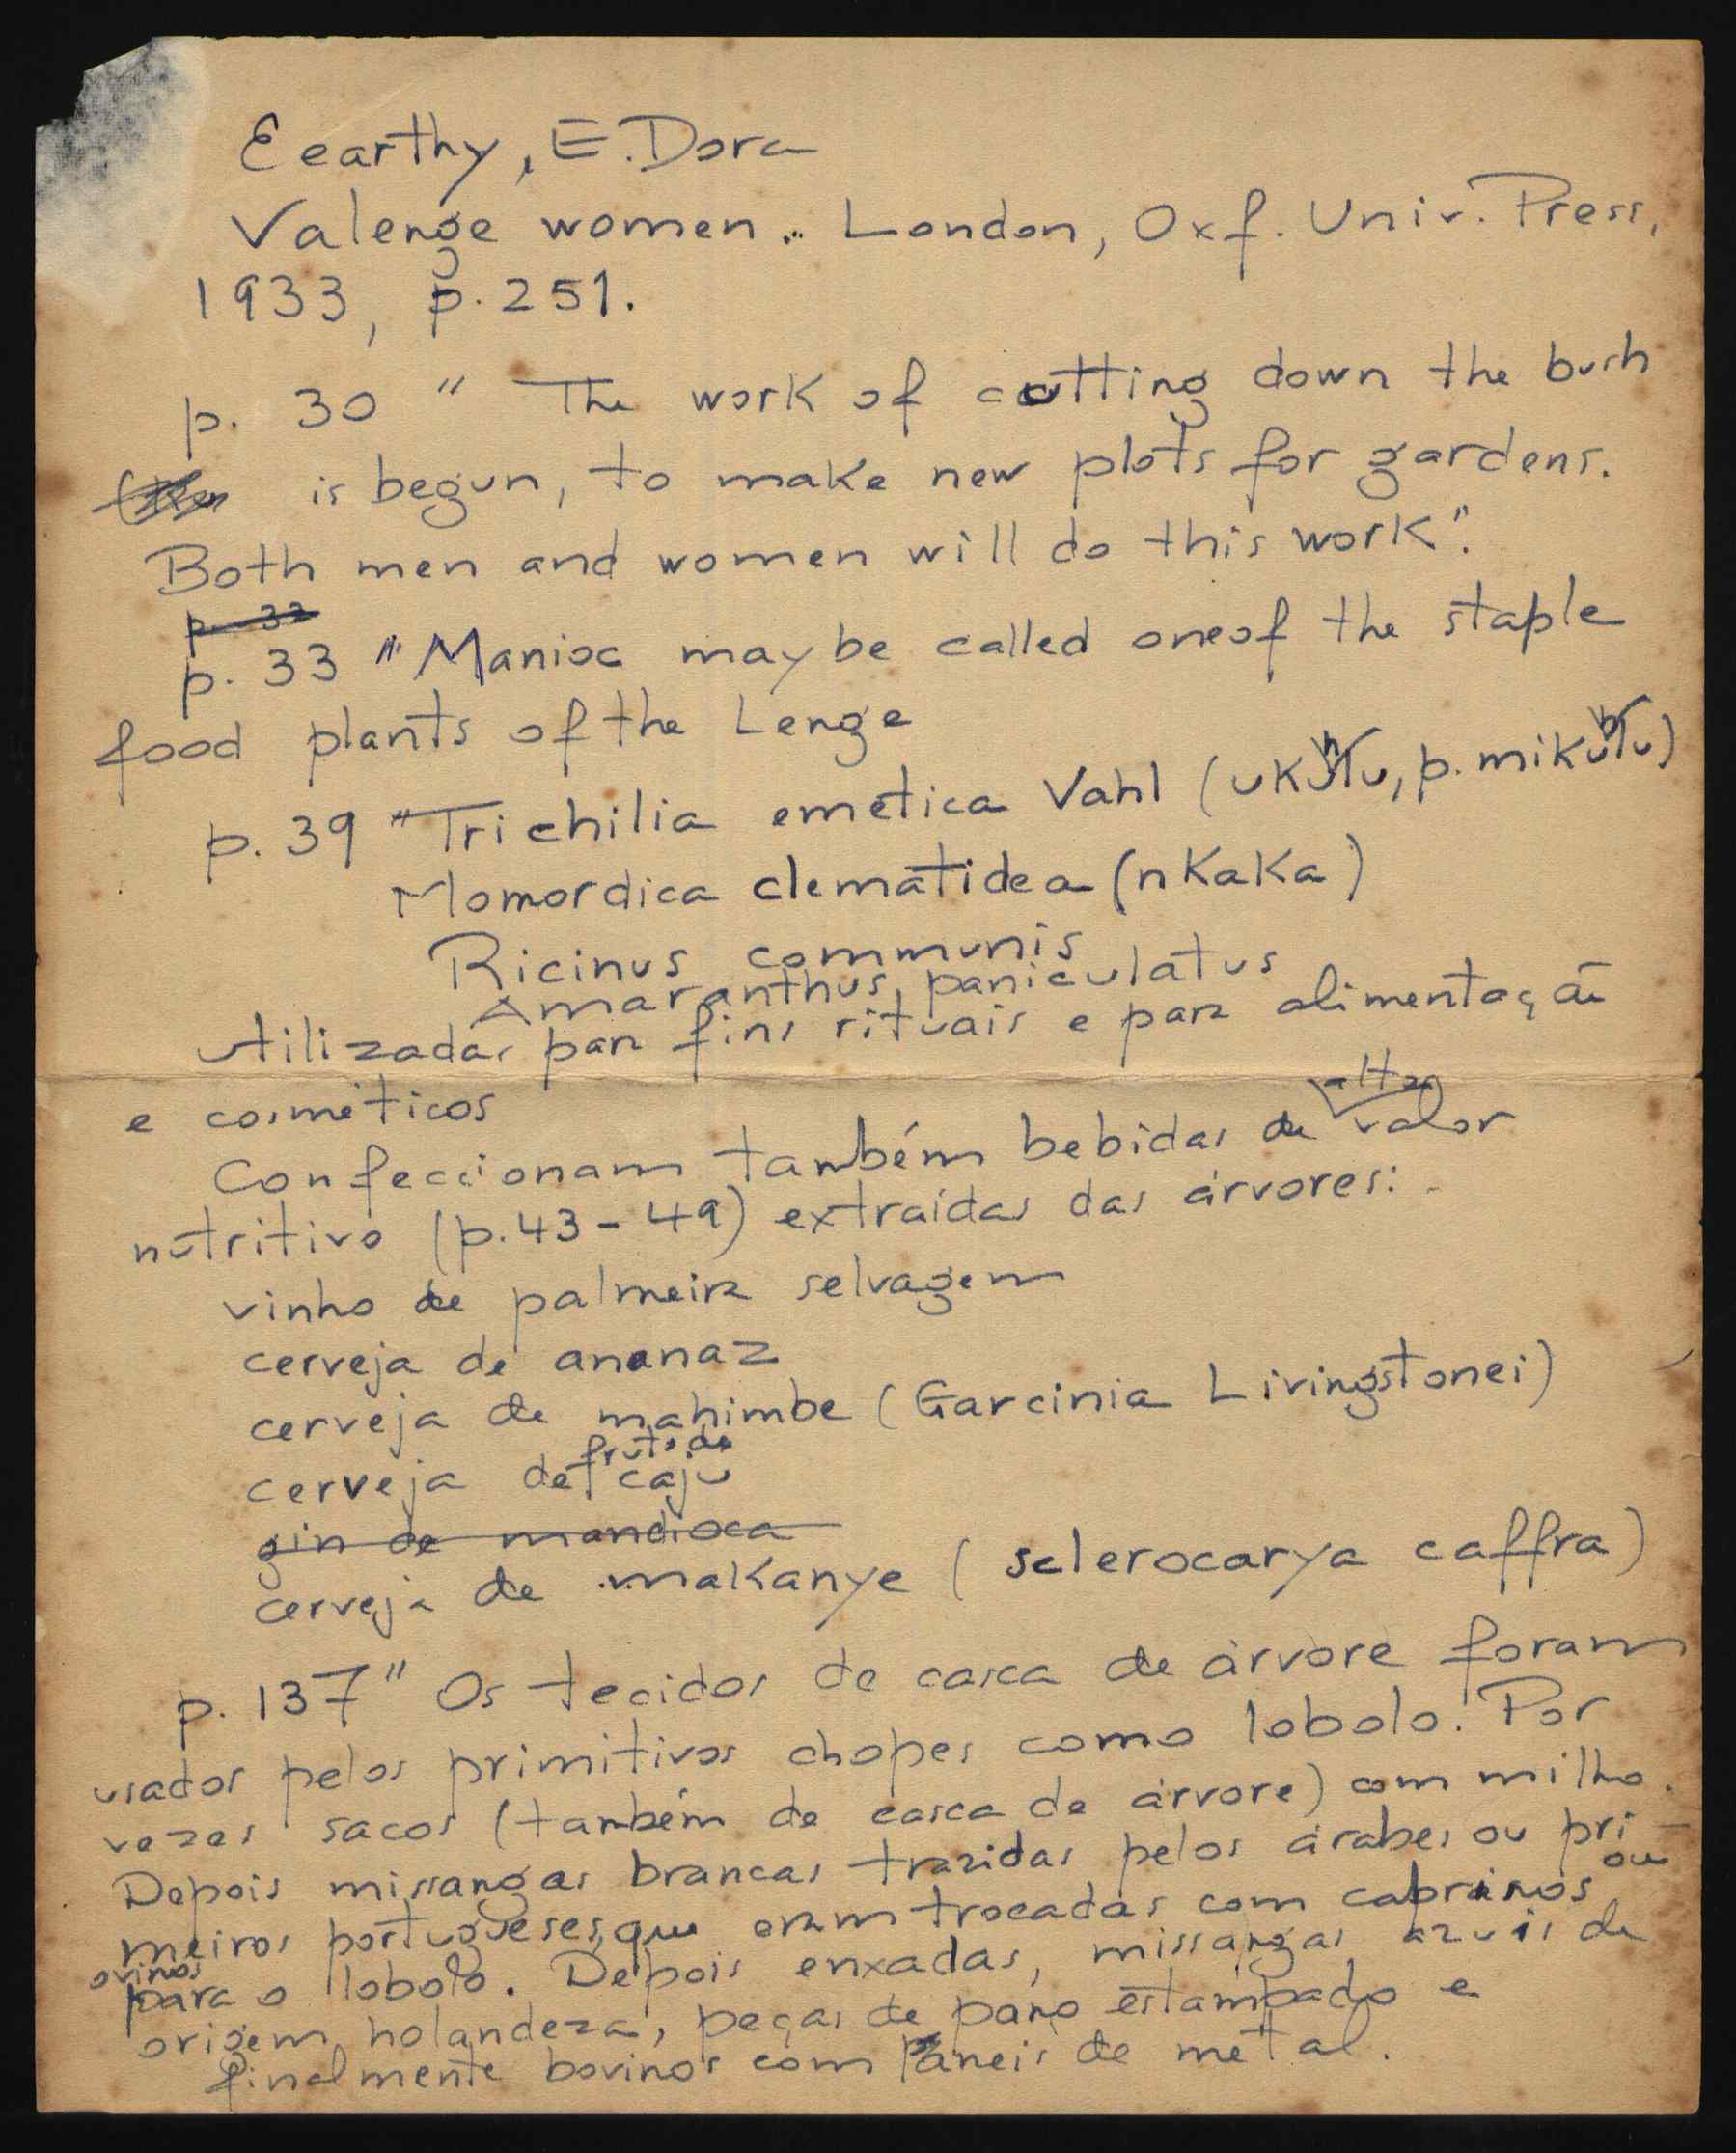 Eearthy, E. Dora
Valenge women .. London, Oxf. Univ. Press,
1933, p. 251.
p. 30 " The work of cutting down the bush
is begun, to make new plots for gardens.
Both men and women will do this work".
p. 33
p. 33 "Manioc may be called one of the staple
food plants of the Lenge
p. 39 "Trichilia emetica Vahl (
Momordica clematidea (nKaKa)
Ricinus communis
Amaranthus paniculatus
utilizadas para fins rituais e para alimentação
e cosméticos
alto
Confeccionam também bebidas de valor
nutritivo (p. 43 - 49) extraídas das árvores:
vinho de palmeira selvagem
cerveja de ananaz
cerveja de mahimbe (Garcinia Livingstonei)
fruto de
cerveja de caju
gin de mandioca
cerveja de makanye ( sclerocarya caffra)
p. 137 " Os tecidos de casca de árvore foram
usados pelos primitivos chopes como lobolo. Por
vezes sacos (também de casca de árvore) com milho.
Depois missangas brancas trazidas pelos árabes ou pri-
meiros portugueses, que eram trocadas com caprinos ou
ovinos
para o lobolo. Depois enxadas, missangas azuis de
origem holandeza, peças de pano estampado e
finalmente bovinos com aneis de metal.